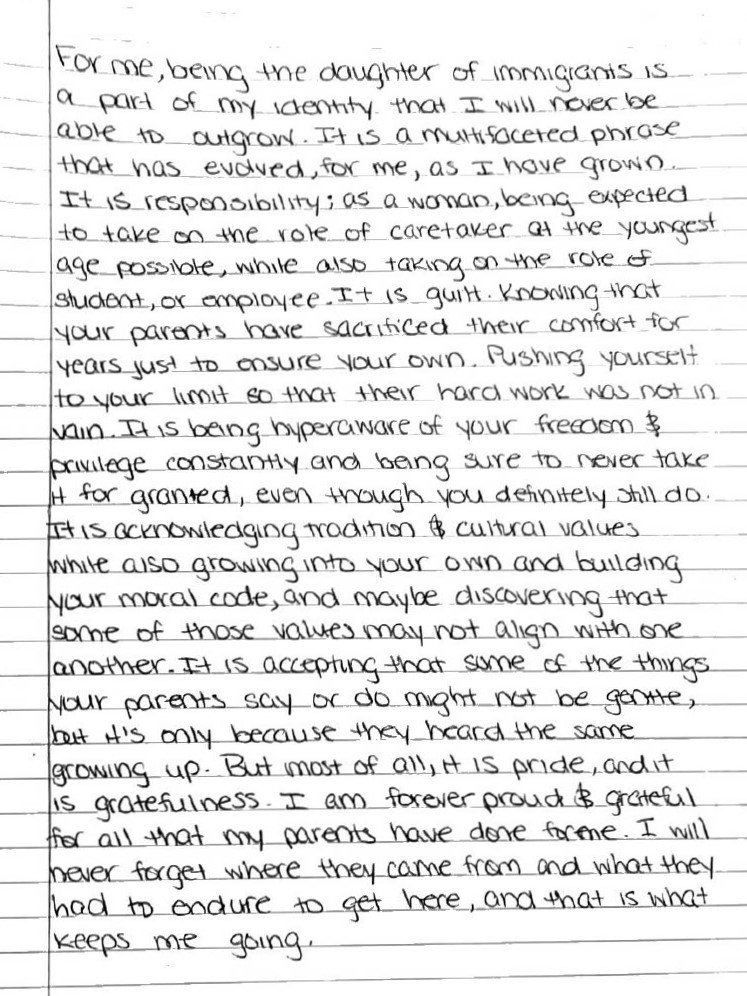 For me, being the daughter of immigrants is
a part of my identity that I will never be
able to outgrow. It is a multifaceted phrase
that has evolved, for me, as I have grown.
It is responsibility; as a woman, being expected
to take on the role of caretaker at the youngest
age possible, while also taking on the role of
student, or employee. It is guilt. Knowing that
your parents have sacrificed their comfort for
years just to ensure your own. Pushing yourself
to your limit so that their hard work was not in
vain. It is being hyperaware of your freedom &
privilege constantly and being sure to never take
it for granted, even though you definitely still do.
It is acknowledging tradition & cultural values
while also growing into your own and building
your moral code, and maybe discovering that
some of those values may not align with one
another. It is accepting that some of the things
your parents say or do might not be gentle,
but it's only because they heard the same
growing up. But most of all, it is pride, and it
is gratefulness. I am forever proud & grateful
for all that my parents have done for me. I will
never forget where they came from and what they
had to endure to get here, and that is what
keeps me going.